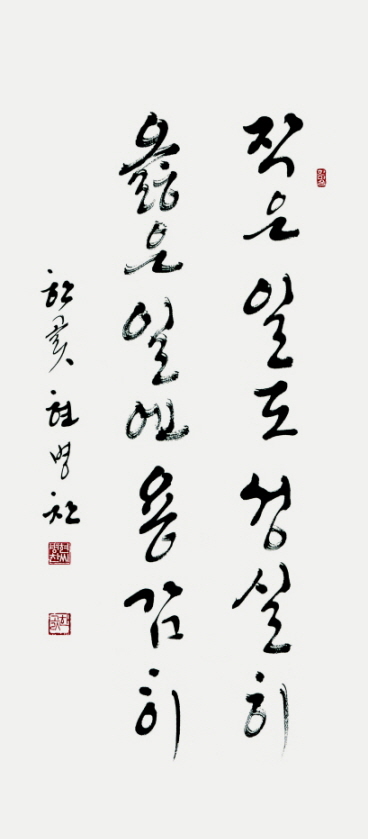 작은 일도 성실히
옳은 일엔 용감히
한곬 현병찬